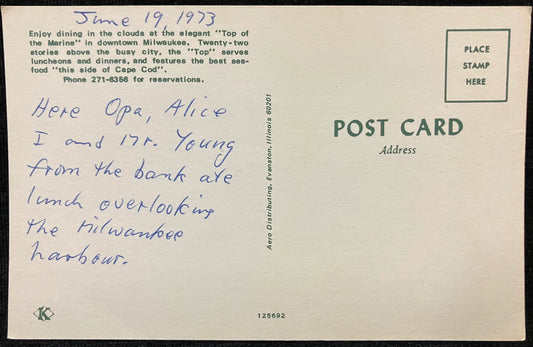 June 19, 1973
Enjoy dining in the clouds at the elegant "Top of
the Marine" in downtown Milwaukee. Twenty-two
stories above the busy city, the "Top" serves
luncheons and dinners, and features the best sea-
food "this side of Cape Cod".
Phone 271-6356 for reservations.
Here Opa, Alice
I and Mr. Young
from the bank ate
lunch overlooking
the Milwaukee
harbour.
K
Aero Distributing, Evanston, Illinois 60201
125692
PLACE
STAMP
HERE
POST CARD
Address